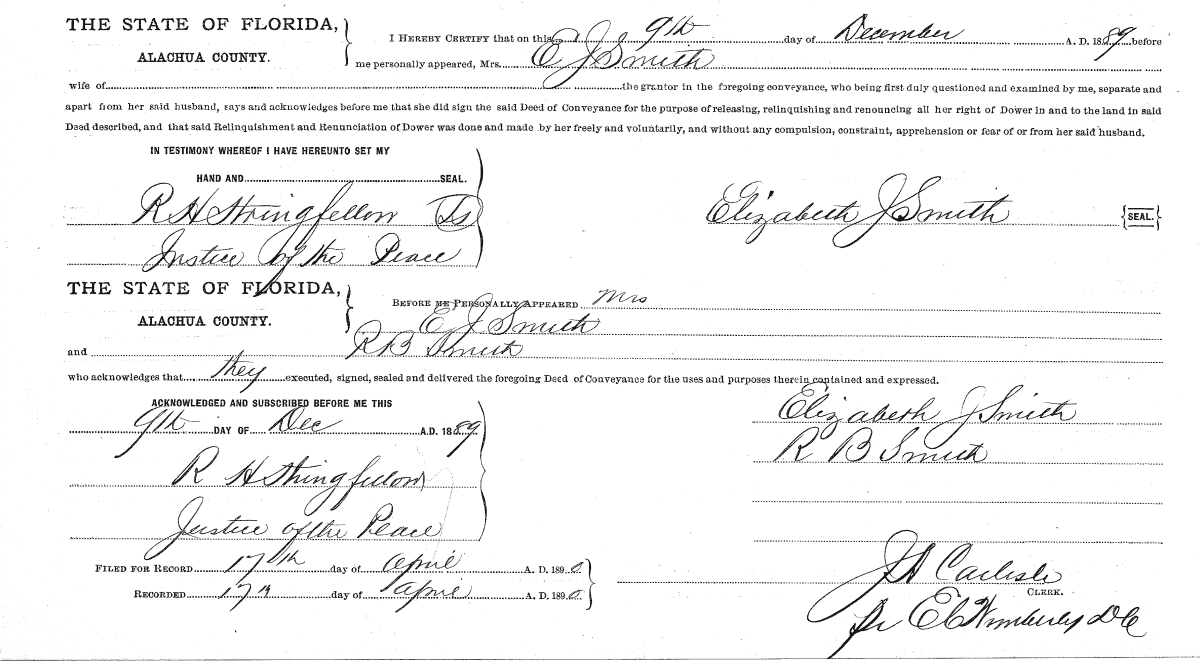 THE STATE OF FLORIDA,
ALACHUA COUNTY.
I HEREBY CERTIFY that on this 9th day of December A. D. 1889 before
me personally appeared, Mrs. E J Smith
wife of the grantor in the foregoing conveyance, who being first duly questioned and examined by me, separate and
apart from her said husband, says and acknowledges before me that she did sign the said Deed of Conveyance for the purpose of releasing, relinquishing and renouncing all her right of Dower in and to the land in said
Deed described, and that said Relinquishment and Renunciation of Dower was done and made by her freely and voluntarily, and without any compulsion, constraint, apprehension or fear of or from her said husband.
IN TESTIMONY WHEREOF I HAVE HEREUNTO SET MY
HAND AND SEAL.
R H Stringfellow Ls
Justice of the Peace
Elizabeth J Smith {SEAL.}
THE STATE OF FLORIDA,
ALACHUA COUNTY.
BEFORE ME PERSONALLY APPEARED Mrs
E J Smith
and R B Smith
who acknowledges that they executed, signed, sealed and delivered the foregoing Deed of Conveyance for the uses and purposes therein contained and expressed.
ACKNOWLEDGED AND SUBSCRIBED BEFORE ME THIS
9th DAY OF Dec A.D. 1889
R H Stringfellow
Justice of the Peace
Elizabeth J Smith
R B Smith
FILED FOR RECORD 17th day of April A. D. 1890
RECORDED 17th day of April A. D. 1890
J A Carlisle
CLERK.
Pr E C Wimberly D C